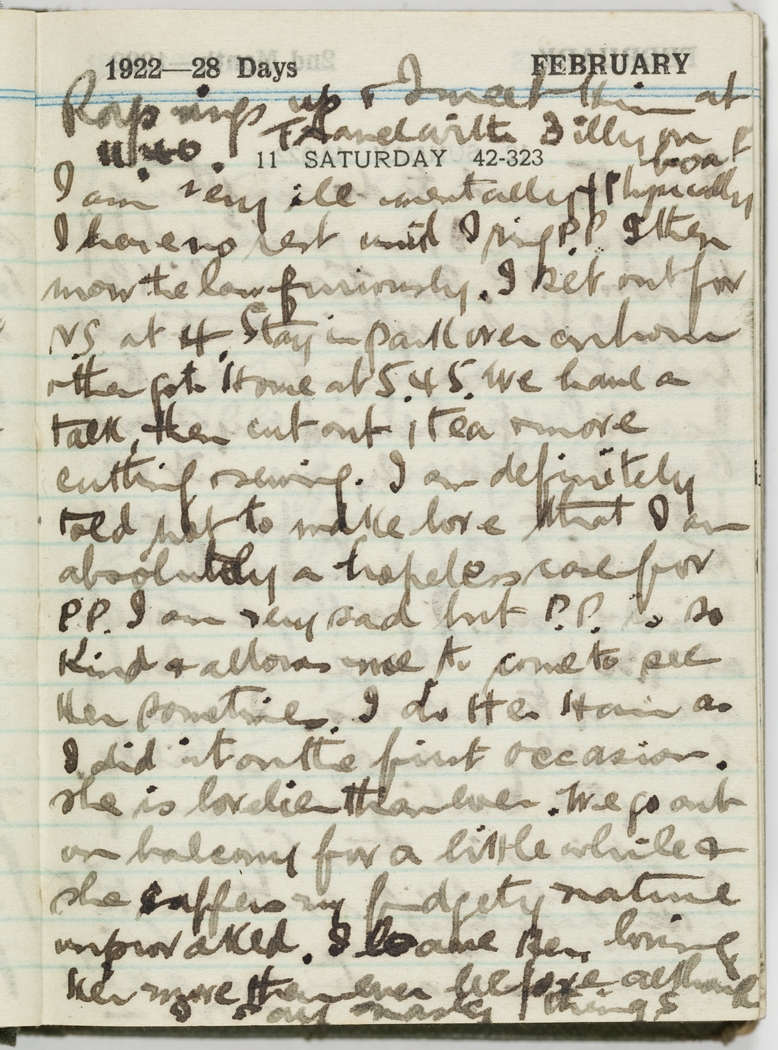 1922—28 Days FEBRUARY
Rap rings up & I meet him at
11.40. Travel with Billy on boat
11 SATURDAY 42-323
I am very ill mentally & Physically
I have no rest until I ring P.P. I then
mow the law furiously. I set out for
NS at 4. Stay in park over an hour
then get Home at 5.45. We have a
talk, then cut out, tea & more
cutting & sewing. I am definitely
told not to make love that I am
absolutely a hopeless case for
P.P. I am very sad but P.P. is so
Kind & allows me to come to see
Her sometimes. I do Her Hair as
I did it on the first occasion.
She is lovelier than ever. We go out
on balcony for a little while &
she suffers my fidgety nature
unprovoked. I leave Her, loving
Her more than ever before although
I say nasty things